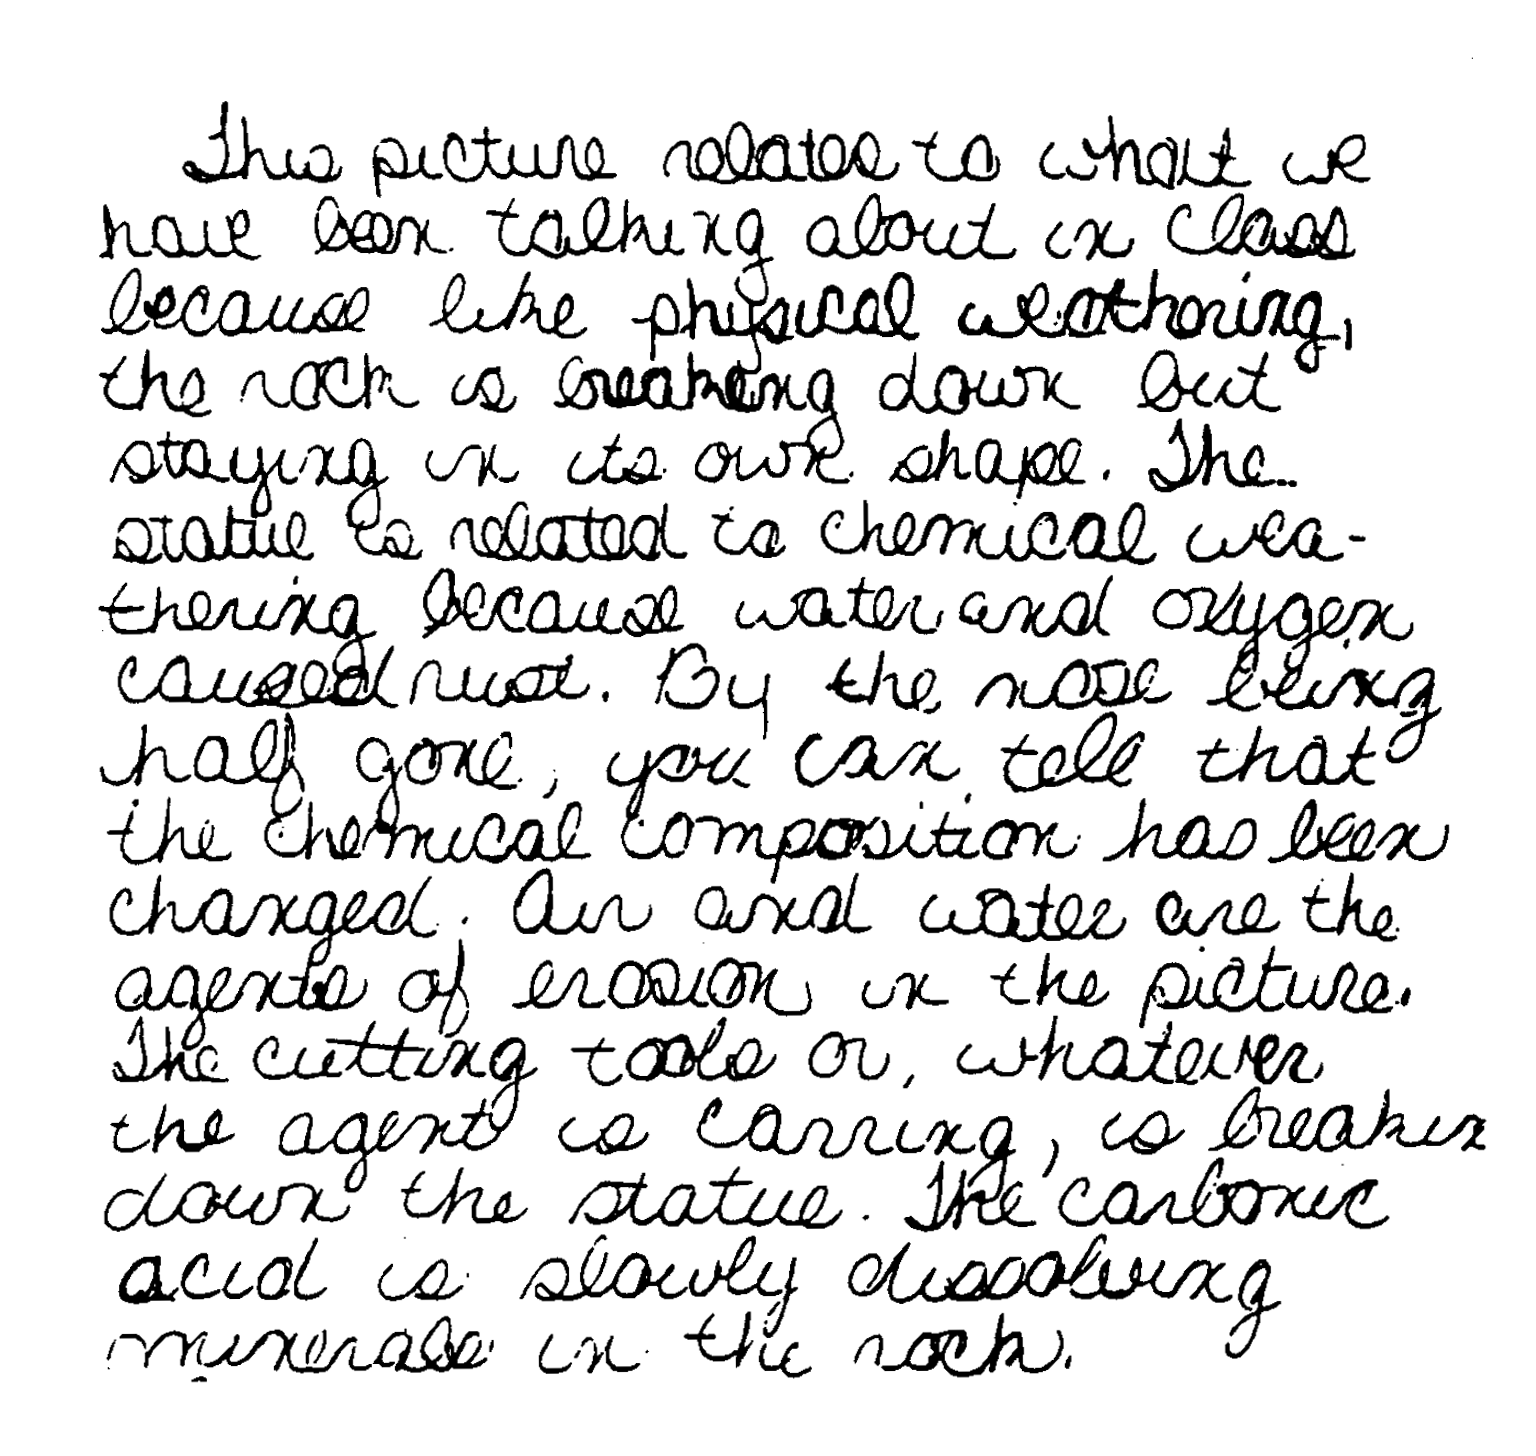 This picture relates to what we
have been talking about in class
because like physical weathering,
the rock is breaking down but
staying in its own shape. The
statue is related to chemical wea-
thering because water and oxygen
caused rust. By the nose being
half gone, you can tell that
the chemical composition has been
changed. Air and water are the
agents of erosion in the picture.
The cutting tools or, whatever
the agent is carring, is breakin
down the statue. The carbonic
acid is slowly dissolving
minerals in the rock.